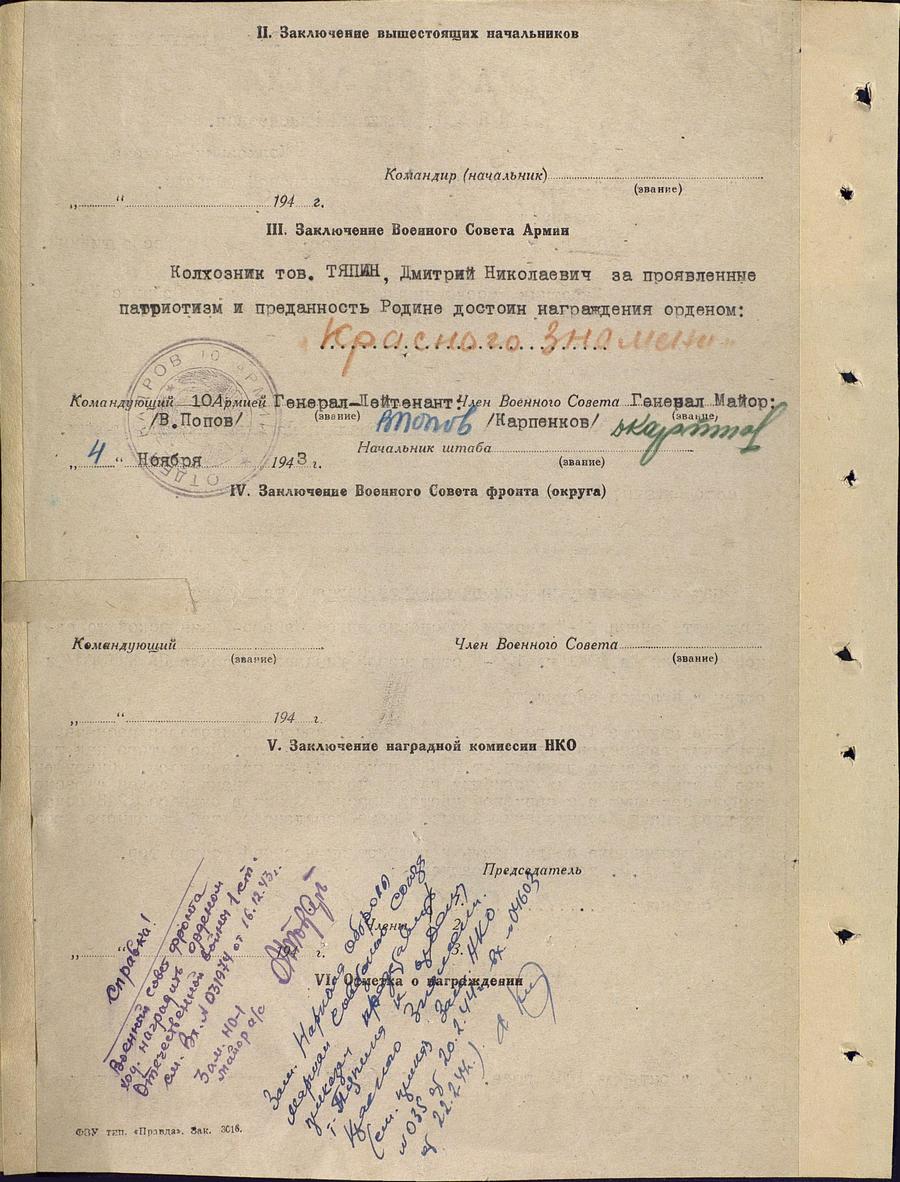 II. Заключение вышестоящих начальников
Командир (начальник)
(звание)
„ “ 194 г.
III. Заключение Военного Совета Армии
Колхозник тов. ТЯПИН, Дмитрий Николаевич за проявленные
патриотизм и преданность Родине достоин награждения орденом:
„Красного Знамени"
Командующий 10 Армией Генерал-Лейтенант: Член Военного Совета Генерал Майор:
(звание) (звание)
/В.Попов/ ВПопов /Карпенков/
Начальник штаба
„4“ Ноября 1943 г. (звание)
IV. Заключение Военного Совета фронта (округа)
Командующий Член Военного Совета
(звание) (звание)
„ “ 194 г.
V. Заключение наградной комиссии НКО
Председатель
Члены 1.
2.
„ “ 194 г. 3.
VI. Отметка о награждении
Справка!
Военный совет фронта
ход. наградить орденом
Отечественной войны 1 ст.
см. Вх. N 031974 от 16.12.43 г.
Зам. НО-1
майор а/с
Зам. Наркома обороны
маршал Советского Союза
приказал представить
т. Тяпина к ордену
Красного Знамени.
(см. Зам. НКО
N 035 от 20.2.44 г. вх. N 04603
от 22.2.44.)
ФЗУ тип. «Правда». Зак. 3016.